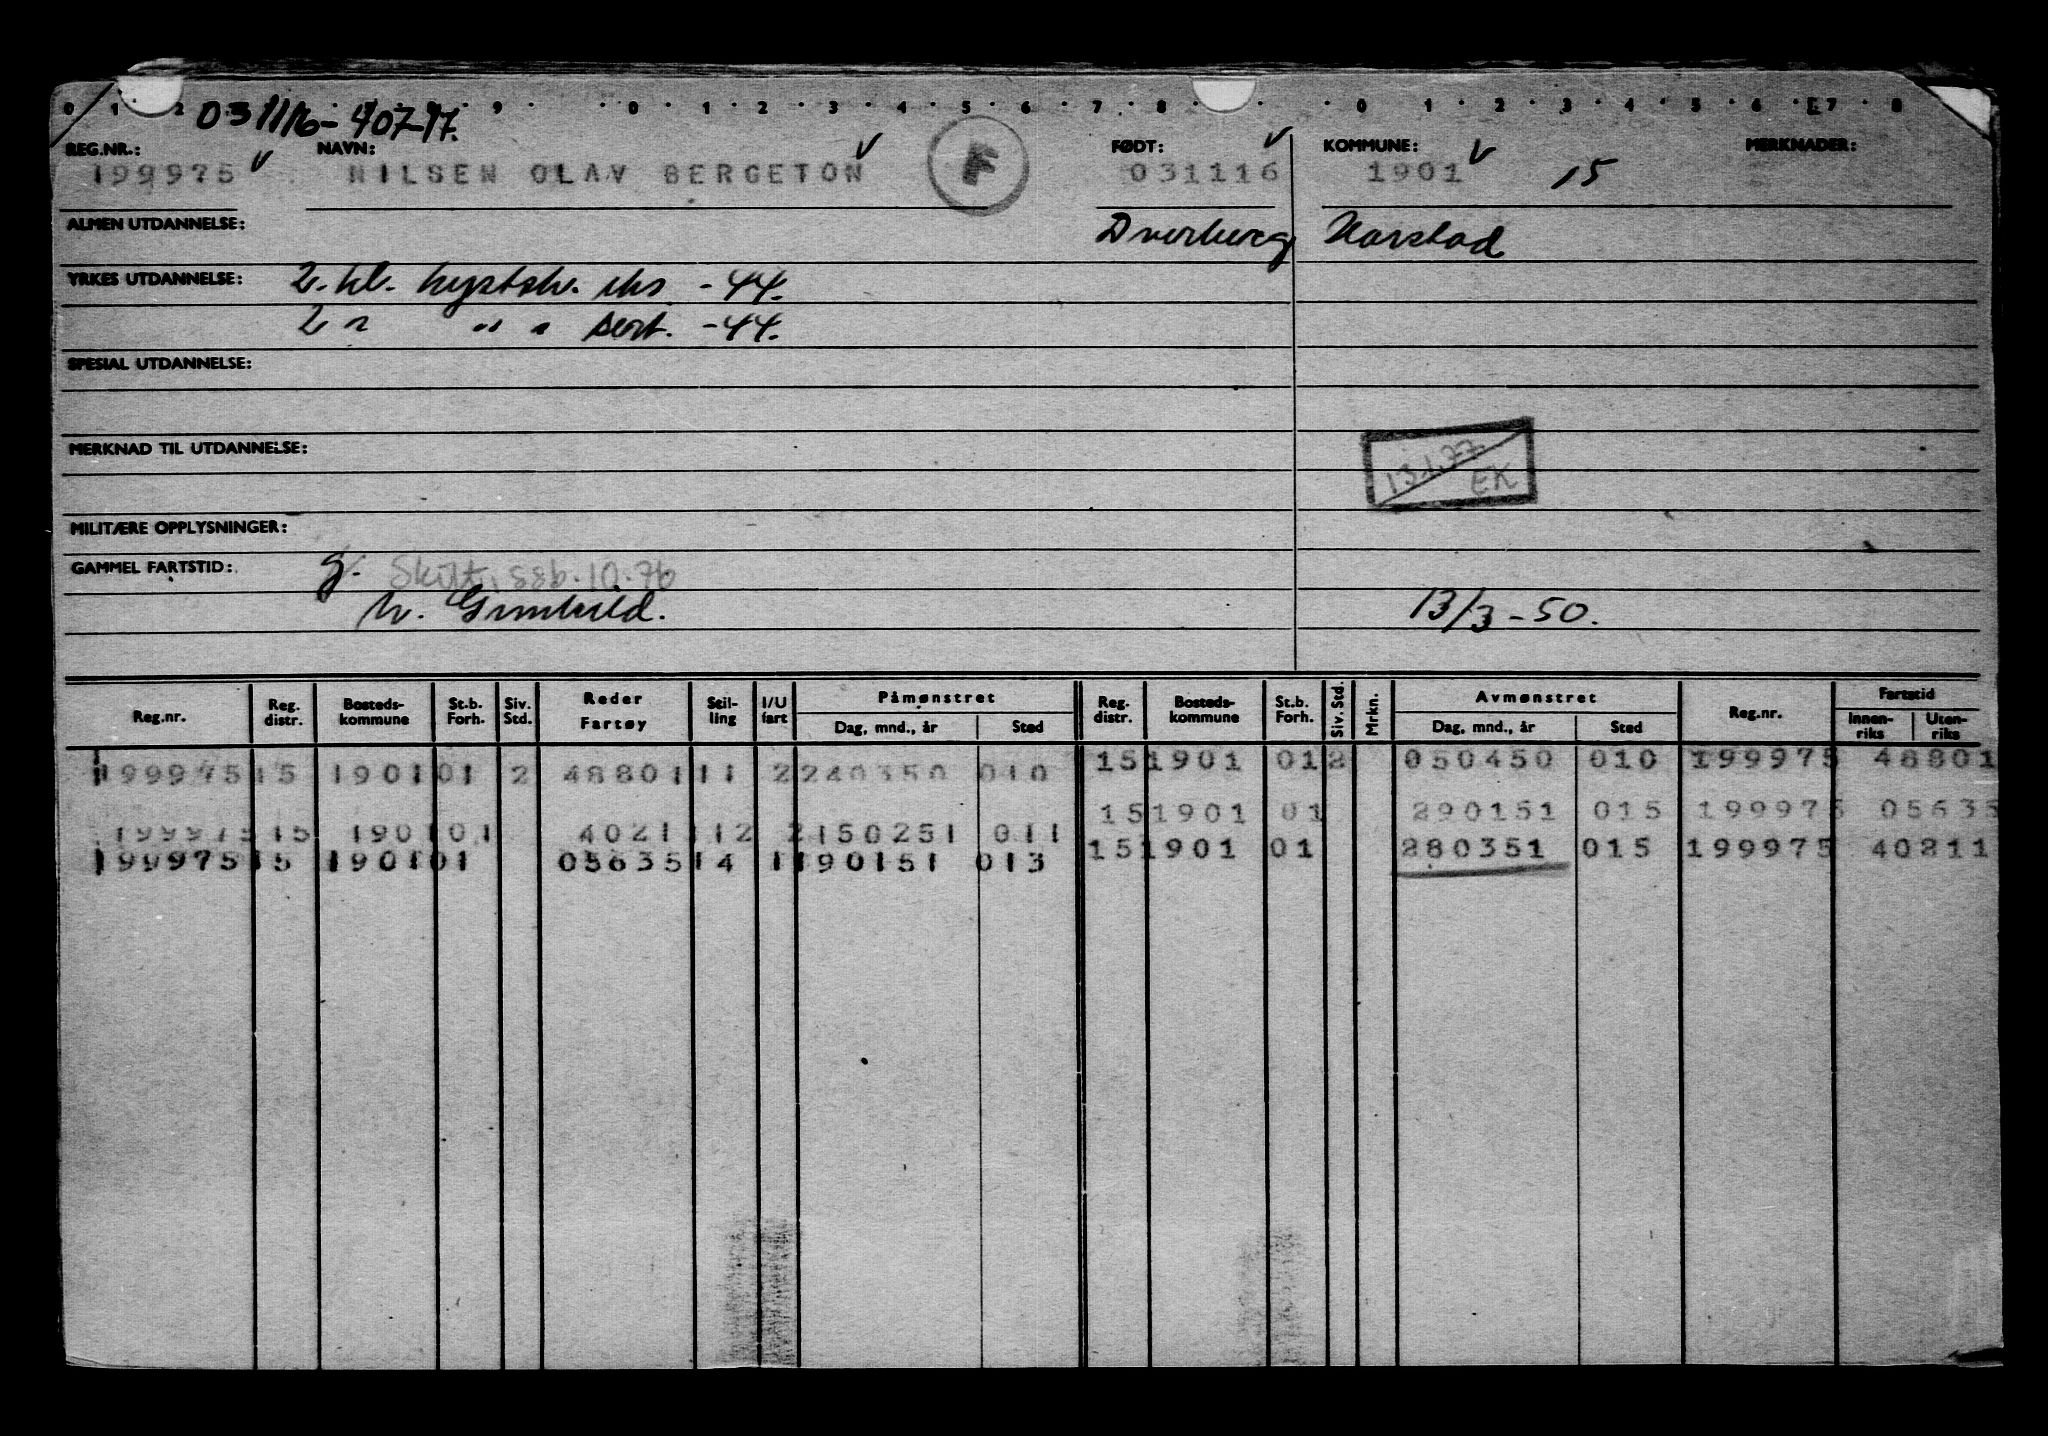 0 1 2 9 0 1 2 3 4 5 6 7 8 0 1 2 3 4 5 6 E7 8
031116-40717.
REG.NR.: NAVN: FØDT: KOMMUNE: MERKNADER:
199975 NILSEN OLAV BERGETON F 031116 1901 15
ALMEN UTDANNELSE: Dverberg Harstad
YRKES UTDANNELSE: 2. kl. kystsk. eks -44.
2 " " " sert. -44.
SPESIAL UTDANNELSE:
MERKNAD TIL UTDANNELSE:
13.1.77 EK
MILITÆRE OPPLYSNINGER:
GAMMEL FARTSTID: g. Skilt, ssb.10.76
13/3-50.
Reg.nr. Reg. distr. Bosteds-kommune St.b. Forh. Siv. Std. Reder Fartøy Stil-ling I/U fart Påmønstret Dag, mnd., år Sted Reg. distr. Bosteds-kommune St.b. Forh. Siv. Std. Mrkn. Avmønstret Dag, mnd., år Sted Reg.nr. Fartstid Innen-riks Uten-riks
199975 15 1901 01 2 48801 11 2 240350 010 15 1901 01 2 050450 010 199975 48801
15 1901 01 290151 015 199975 05635
199975 15 1901 01 40211 12 2 150251 011
199975 15 1901 01 05635 14 1 190151 013 15 1901 01 280351 015 199975 40211